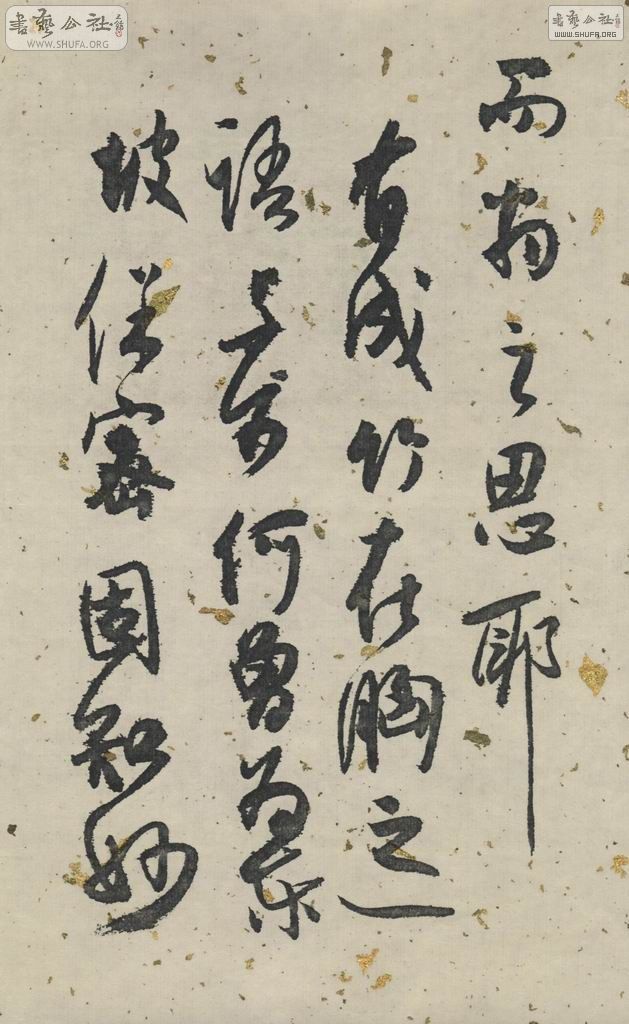 書藝公社
WWW.SHUFA.ORG
書藝公社
WWW.SHUFA.ORG
而翁之思耶
有成竹在胸之
語何曾為東
坡保密固知妙